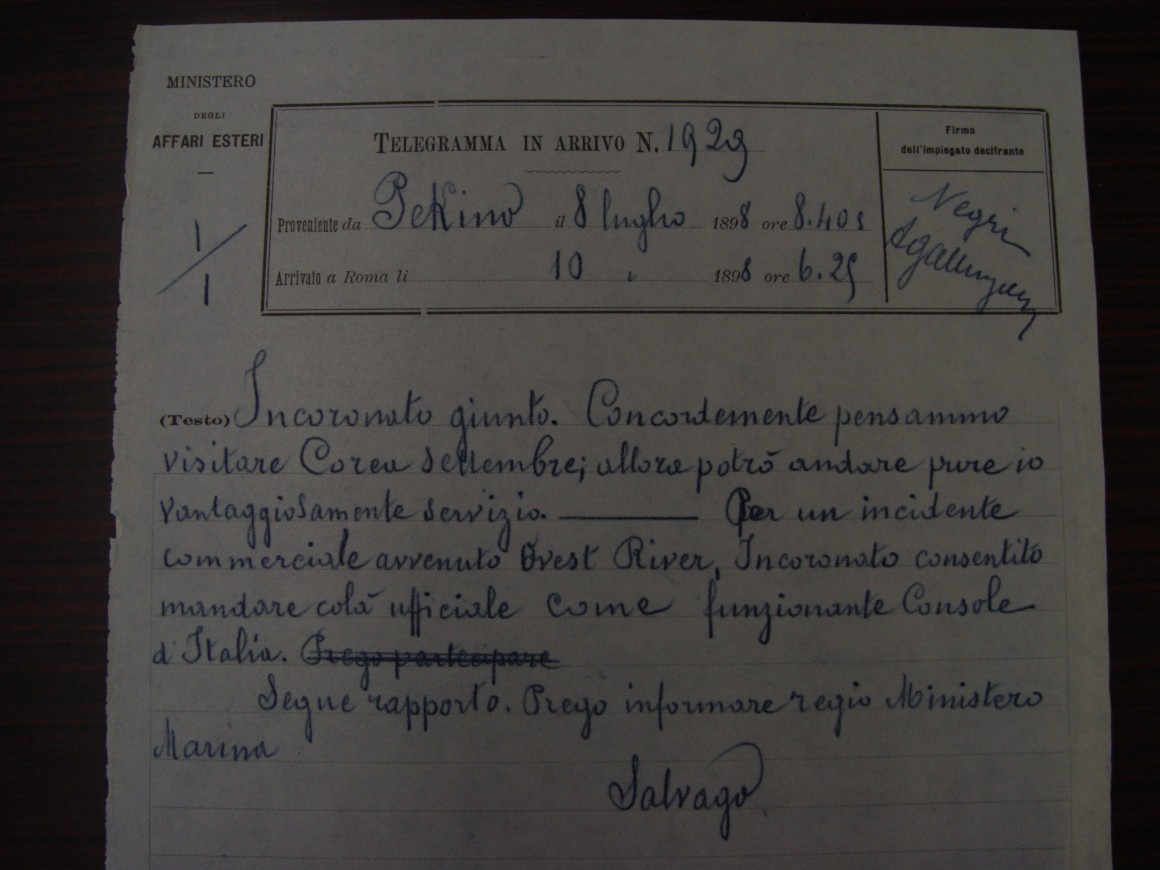 MINISTERO
DEGLI
AFFARI ESTERI
1/1
TELEGRAMMA IN ARRIVO N. 1929
Proveniente da Pekino il 8 luglio 1898 ore 8.40s
Arrivato a Roma li 10 " 1898 ore 6.25
Firma
dell'impiegato decifrante
Negri
(Testo) Incoronato giunto. Concordemente pensammo
visitare Corea settembre; allora potrò andare pure io
vantaggiosamente servizio. — Per un incidente
commerciale avvenuto Ovest River, Incoronato consentito
mandare colà ufficiale come funzionante Console
d'Italia. Prego partecipare
Segue rapporto. Prego informare regio Ministero
Marina
Salvago